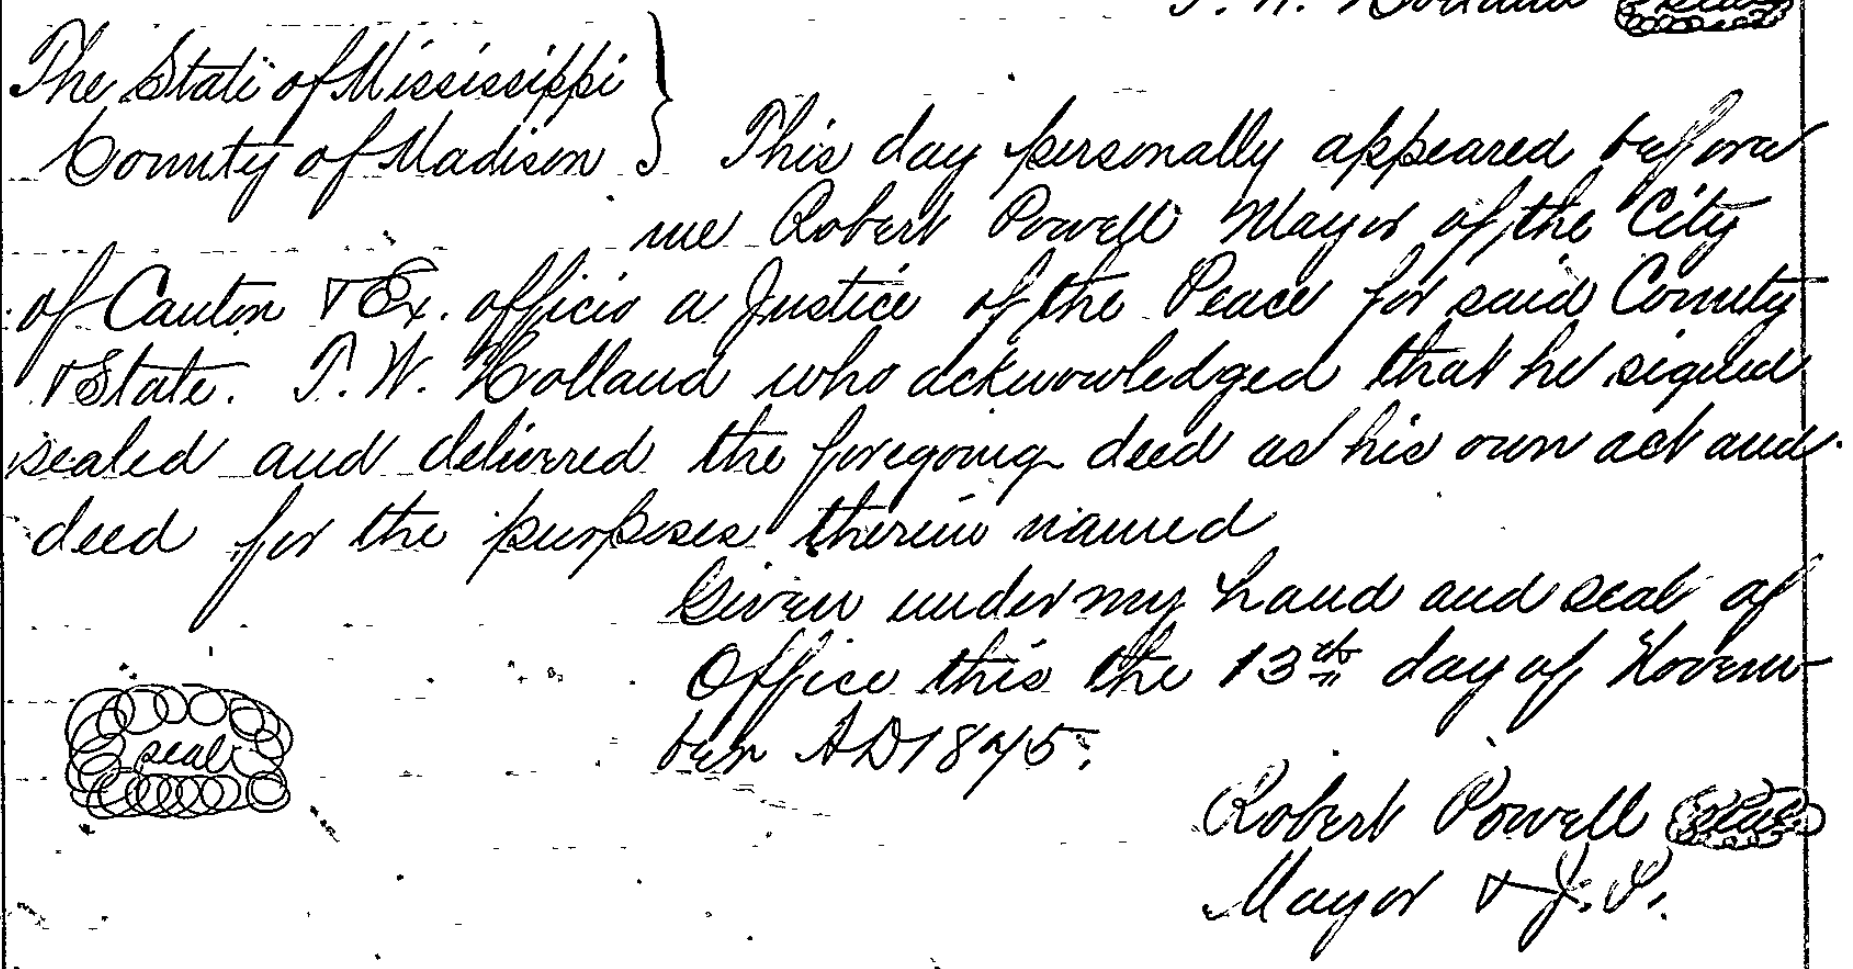 T. W. Holland seal
The State of Mississippi }
County of Madison } This day personally appeared before
me Robert Powell Mayor of the City
of Canton & Ex. officio a Justice of the Peace for said County
& State. T. W. Holland who acknowledged that he signed
sealed and delivered the foregoing deed as his own act and
deed for the purposes therein named
Given under my hand and seal of
Office this the 13th day of Novem-
ber AD 1875.
seal
Robert Powell seal
Mayor & J. P.